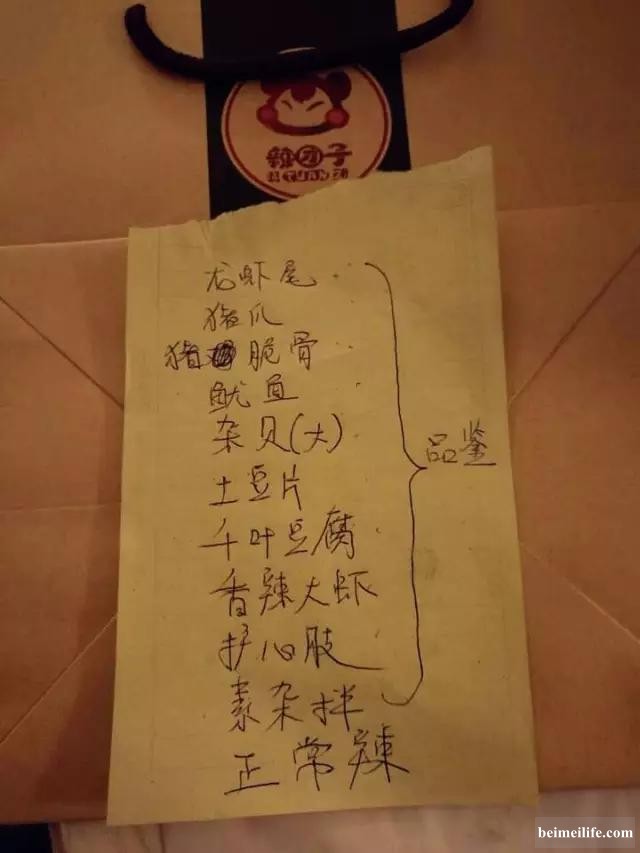 辣团子
TUAN
龙虾尾
猪爪
猪脆骨
鱿鱼
杂贝(大)
土豆片
千叶豆腐
香辣大虾
护心肢
素杂拌
品鉴
正常辣
beimeilife.com